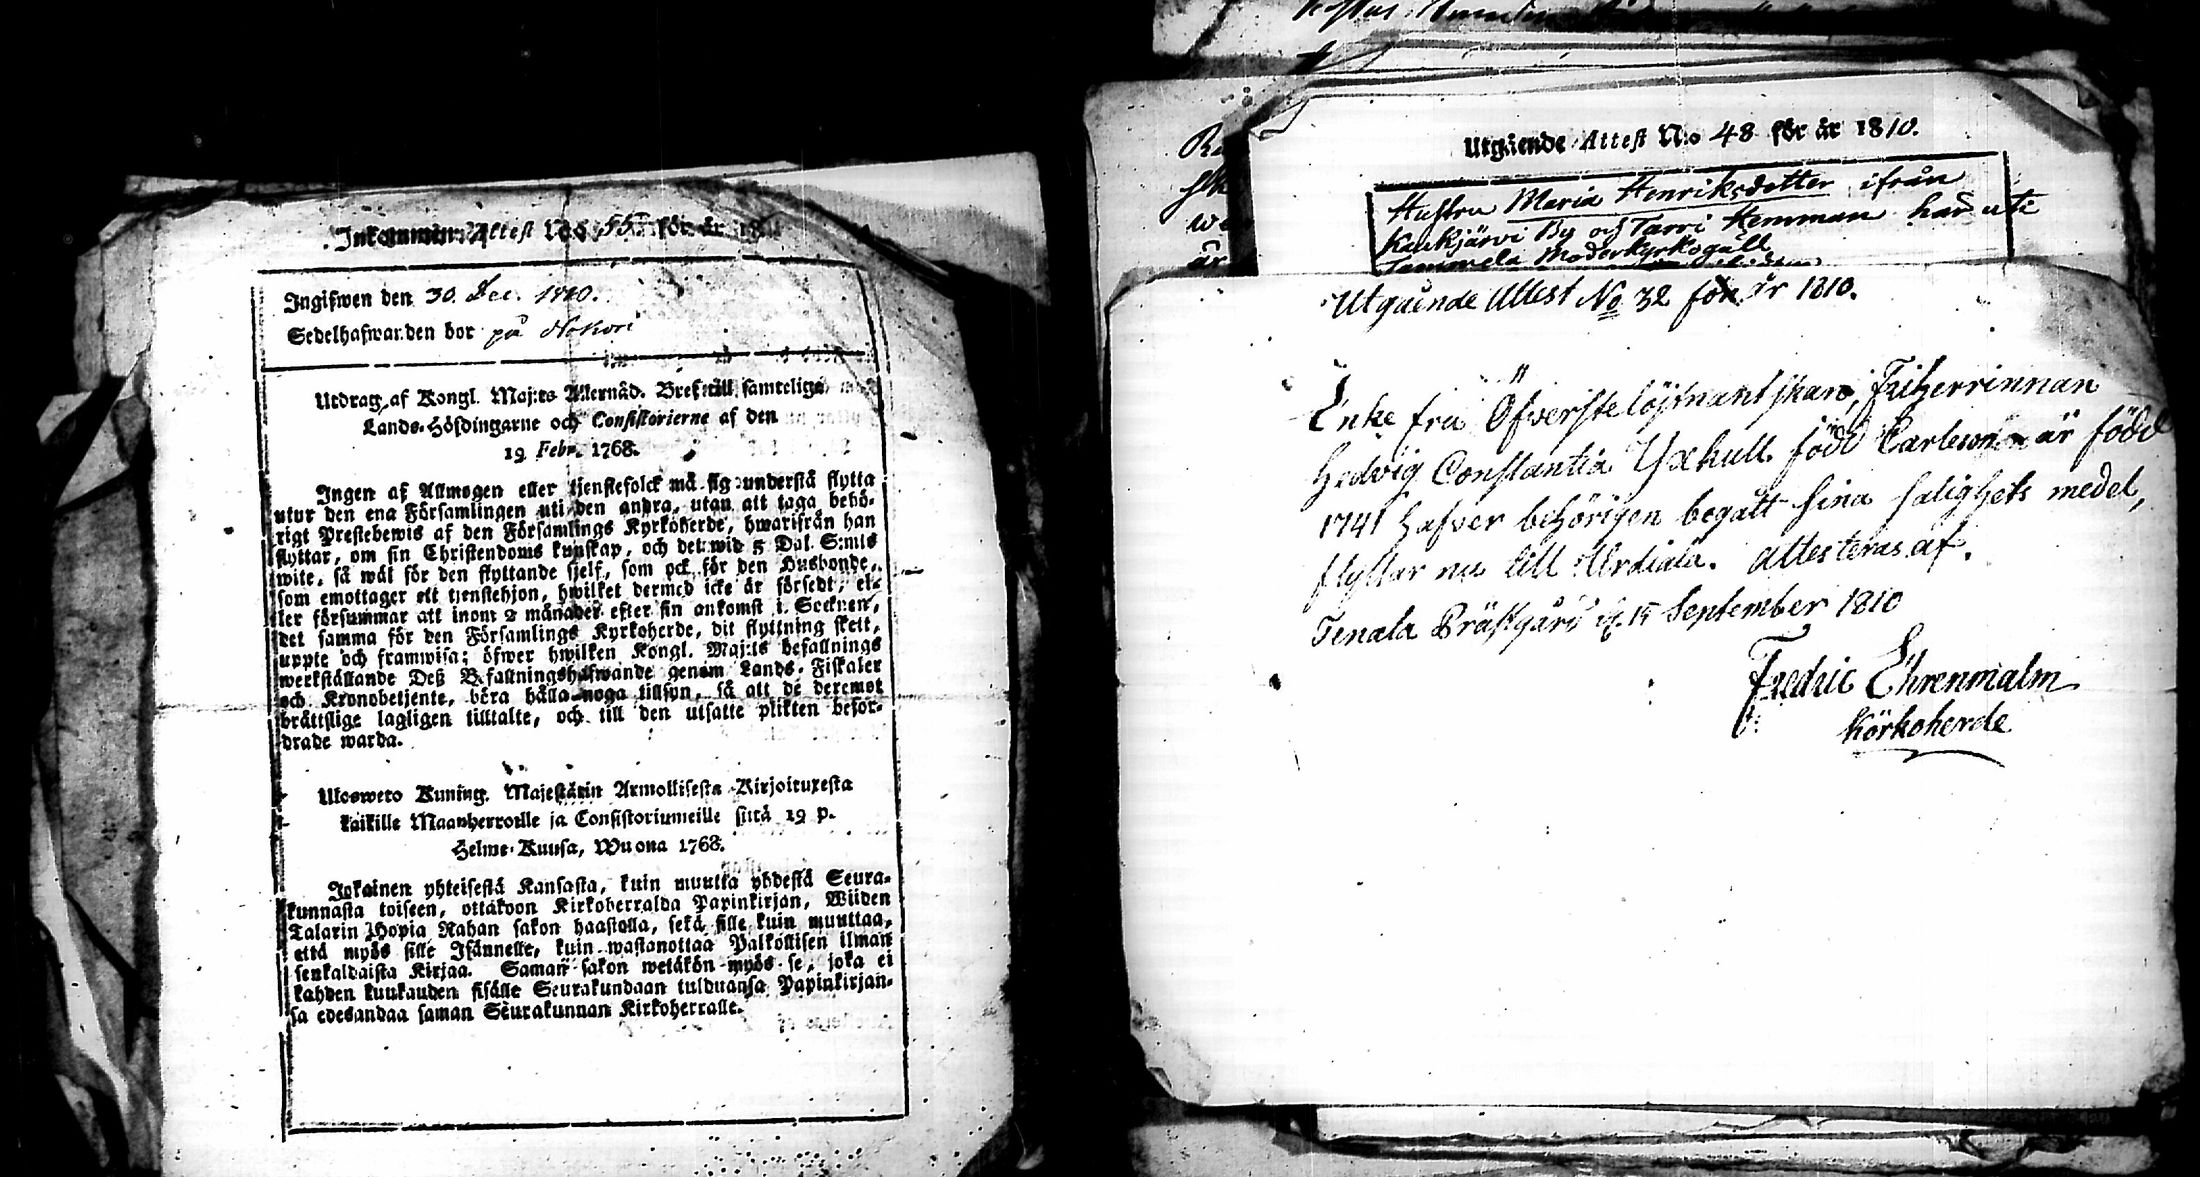 Inkommin Attest No 55 för år 18
Ingifwen den 30 Dec. 1810.
Sedelhafwanden bor på
Utdrag af Kongl. Maj:ts Allernåd. Bref till samtelige
Lands-Höfdingarne och Consistorierne af den
19 Febr. 1768.
Ingen af Allmogen eller tjenstefolck må sig understå flytta
utur den ena Församlingen uti den andra, utan att taga behö-
rigt Prestebewis af den Församlings Kyrkoherde, hwarifrån han
flyttar, om sin Christendoms kunskap, och det wid 5 Dal. S:mts
wite, så wäl för den flyttande sjelf, som ock för den Husbonde,
som emottager ett tjenstehjon, hwilket dermed icke är försedt, el-
ler försummar att inom 2 månader efter sin ankomst i Socknen,
det samma för den Församlings Kyrkoherde, dit flyttning skett,
uppte och framwisa; öfwer hwilken Kongl. Maj:ts befallnings
werkställande Deß Befallningshafwande genom Lands-Fiskaler
och Kronobetjente, böra hålla noga tillsyn, så att de deremot
brättslige lagligen tilltalte, och till den utsatte plikten befor-
drade warda.
Ulosweto Kuning. Majestätin Armollisesta Kirjoituxesta
kaikille Maanherroille ja Consistoriumeille siitä 19 p.
Helme-Kuusa, Wuona 1768.
Jokainen yhteisestä Kansasta, kuin muutta yhdestä Seura-
kunnasta toiseen, ottakoon Kirkoherralda Papinkirjan, Wiiden
Talarin Hopia Rahan sakon haastolla, sekä sille kuin muuttaa,
että myös sille Isännelle, kuin wastanottaa Palkollisen ilman
senkaldaista Kirjaa. Saman sakon wetäkön myös se, joka ei
kahden kuukauden sisälle Seurakundaan tulduansa Papinkirjan-
sa edesandaa saman Seurakunnan Kirkoherralle.
Utgående Attest No 48 för år 1810.
Hustru Maria Henriksdotter ifrån
Kaukjärvi By och Tarri Hemman har uti
Tammela Moderkyrkogäll
Utgående Attest No 32 för år 1810.
Enke fru Öfverstelöjtnantskan, Friherrinnan
Hedvig Constantia Yxkull född Carleson är född
1741 hafver behörigen begått sina salighets medel,
flyttar nu till Urdiala. attesteras af.
Tenala Prästgård d. 15 September 1810
Fredric Ehrenmalm
Körkoherde